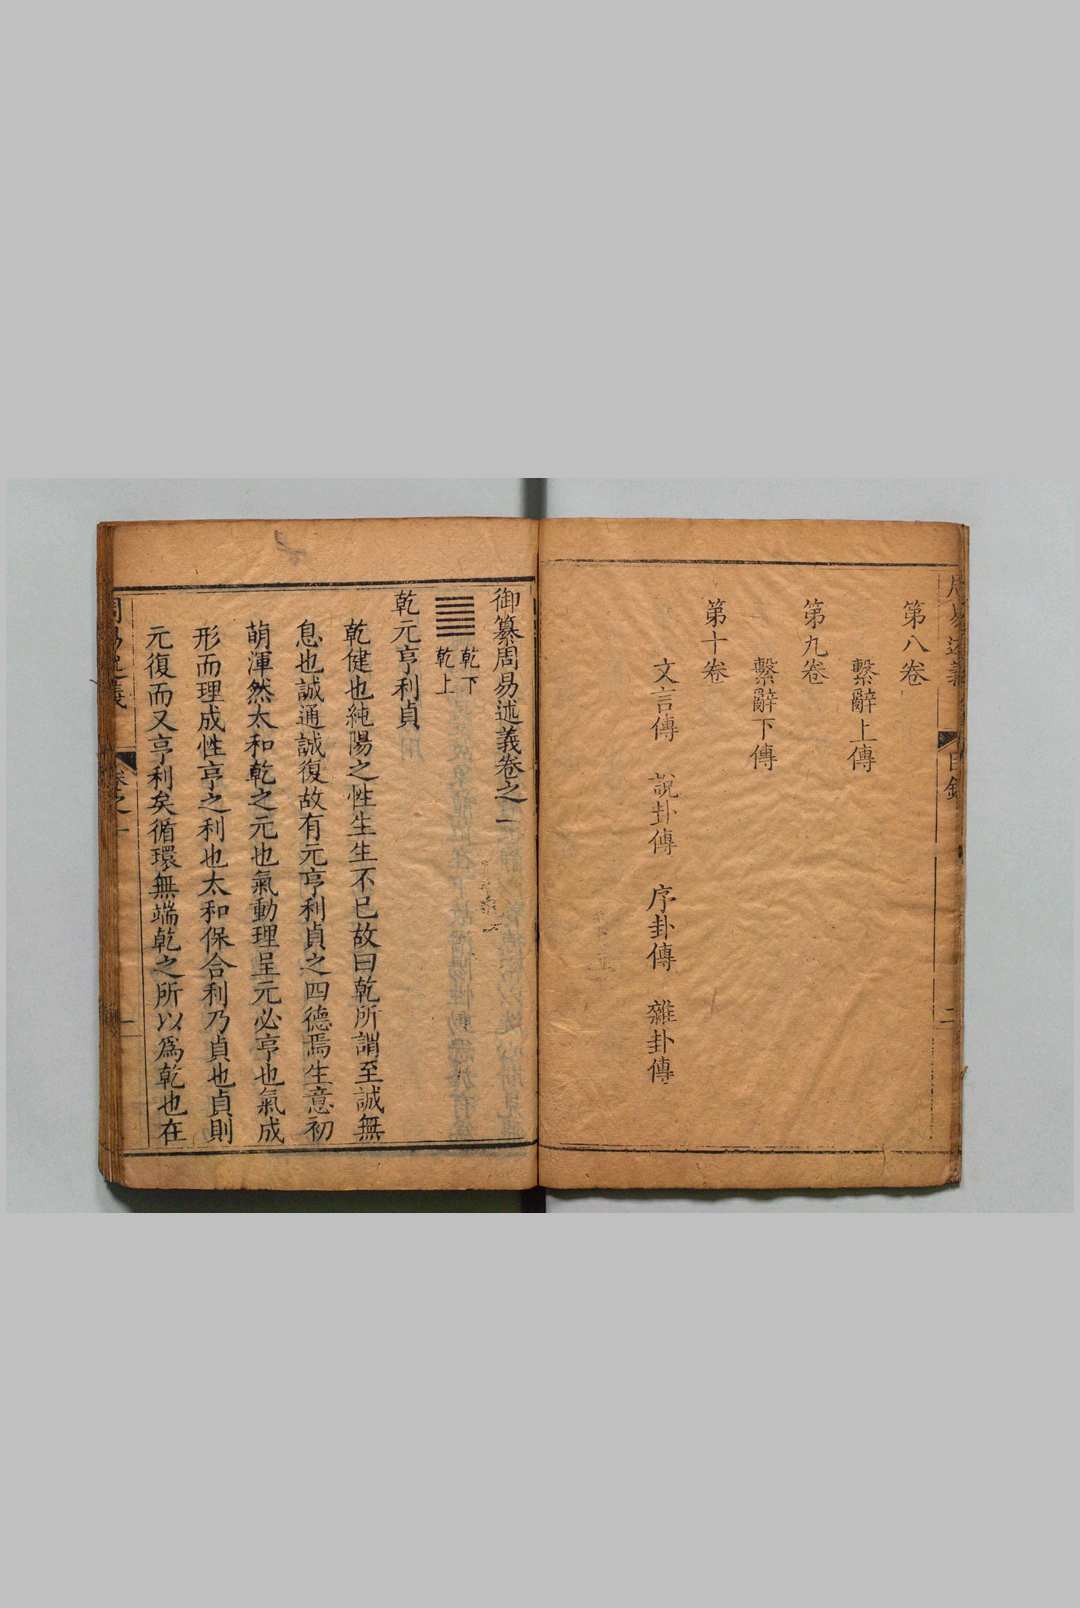 周易述義
目錄
二
第八卷
繫辭上傳
第九卷
繫辭下傳
第十卷
文言傳 說卦傳 序卦傳 雜卦傳
御纂周易述義卷之一
乾下
乾上
乾元亨利貞
乾健也純陽之性生生不已故曰乾所謂至誠無
息也誠通誠復故有元亨利貞之四德焉生意初
萌渾然太和乾之元也氣動理呈元必亨也氣成
形而理成性亨之利也太和保合利乃貞也貞則
元復而又亨利矣循環無端乾之所以為乾也在
周易述義
卷之一
一